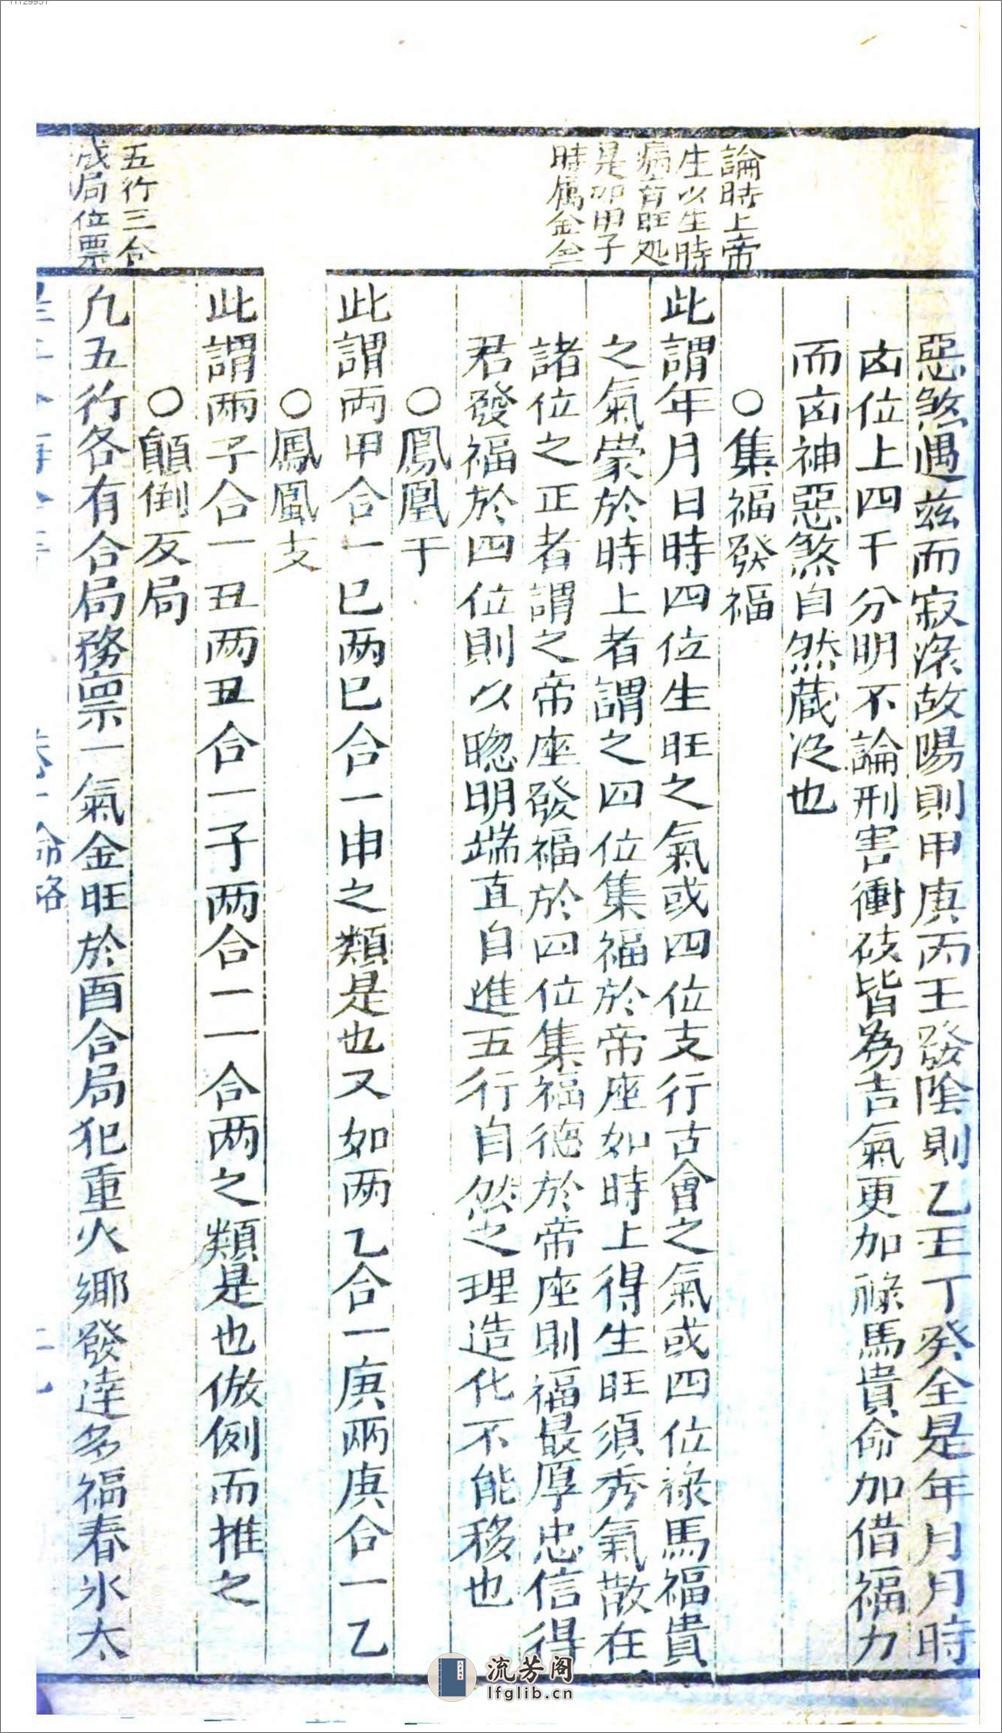 惡煞遇兹而寂滅故陽則甲庚丙壬發陰則乙王丁癸全是年月月時
凶位上四干分明不論刑害衝破皆為吉氣更加祿馬貴命加借福力
而凶神惡煞自然藏没也
○集福發福
論時上帝
生以生時
病育旺処
是如甲子
時属金
此謂年月日時四位生旺之氣或四位支行古會之氣或四位祿馬福貴
之氣蒙於時上者謂之四位集福於帝座如時上得生旺須秀氣散在
諸位之正者謂之帝座發福於四位集福德於帝座則福最厚忠信得
君發福於四位則以聦明端直自進五行自然之理造化不能移也
○鳳凰干
此謂両甲合一巳两巳合一申之類是也又如两乙合一庚两庚合一乙
○鳳凰支
此謂兩子合一丑两丑合一子两合一一合两之類是也倣例而推之
○顛倒反局
五行三合
成局位票
凢五行各有合局務禀一氣金旺於酉合局犯重火鄉發達多福春氷太
命略
流芳阁
lfglib.cn